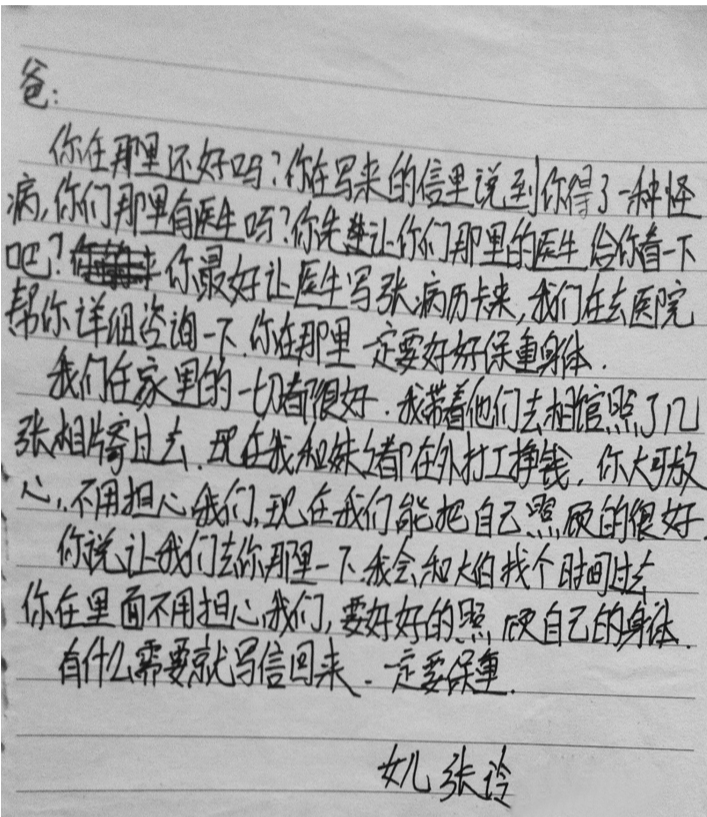 爸:
你在那里还好吗?你在写来的信里说到你得了一种怪
病,你们那里有医生吗?你先让你们那里的医生给你看一下
吧?你最好让医生写张病历卡来,我们在去医院
帮你详细咨询一下.你在那里一定要好好保重身体.
我们在家里的一切都很好.我带着他们去相馆照了几
张相片寄过去.现在我和妹々都在外打工挣钱,你大可放
心,不用担心我们,现在我们能把自己照顾的很好.
你说让我们去你那里一下.我会和大伯找个时间过去
你在里面不用担心我们,要好好的照顾自己的身体.
有什么需要就写信回来.一定要保重.
女儿 张